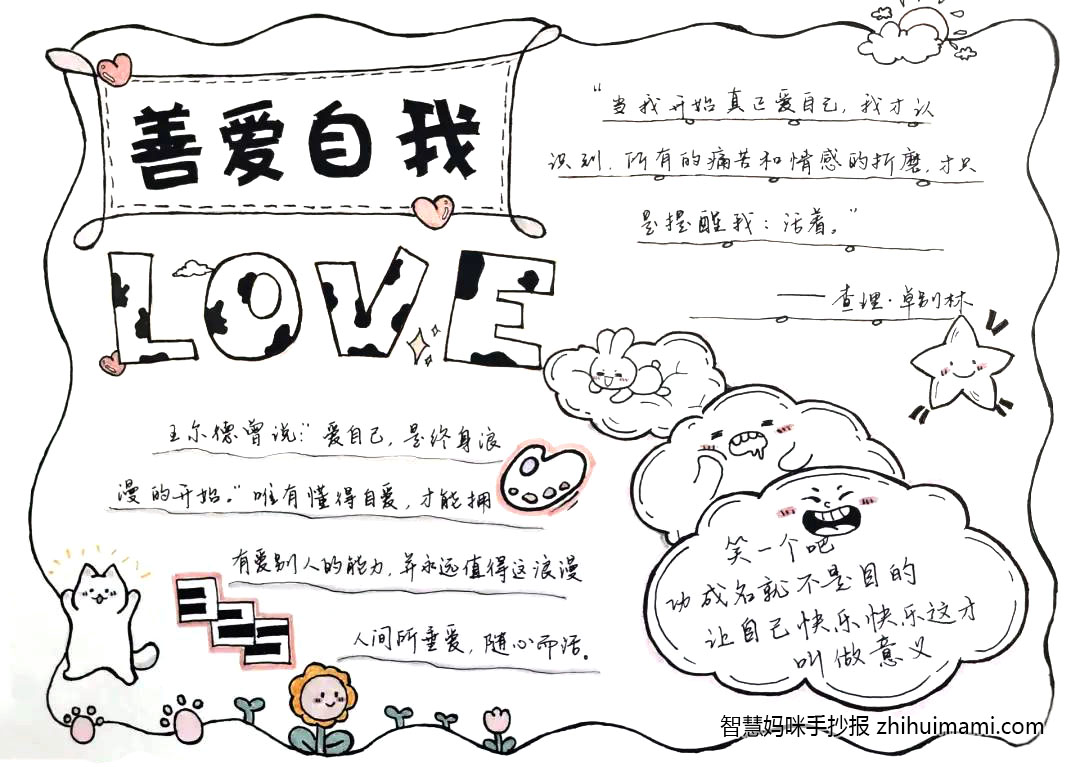 善爱自我
LOVE
“当我开始真正爱自己，我才认
识到，所有的痛苦和情感的折磨，才只
是提醒我：活着。”
——查理·卓别林
王尔德曾说：“爱自己，是终身浪
漫的开始。”唯有懂得自爱，才能拥
有爱别人的能力，并永远值得这浪漫
人间所垂爱，随心而活。
笑一个吧
功成名就不是目的
让自己快乐快乐这才
叫做意义
智慧妈咪手抄报 zhihuimami.com